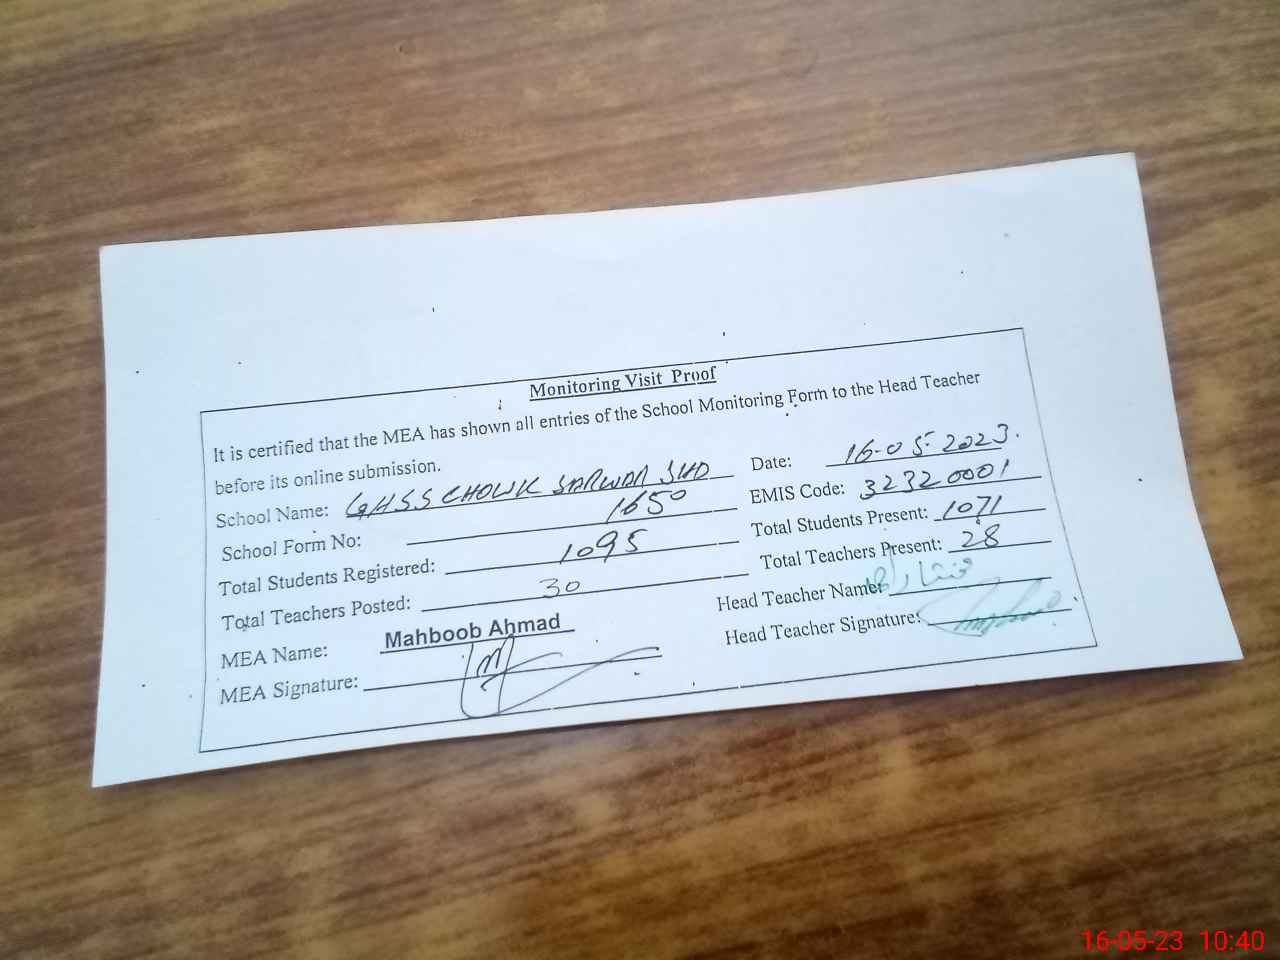 Monitoring Visit Proof
It is certified that the MEA has shown all entries of the School Monitoring Form to the Head Teacher
before its online submission.
School Name: GHSS CHOWK SARWAR SHD
Date: 16-05-2023.
School Form No: 1650
EMIS Code: 32320001
Total Students Registered: 1095
Total Students Present: 1071
Total Teachers Posted: 30
Total Teachers Present: 28
MEA Name: Mahboob Ahmad
Head Teacher Name:
MEA Signature:
Head Teacher Signature:
16-05-23 10:40